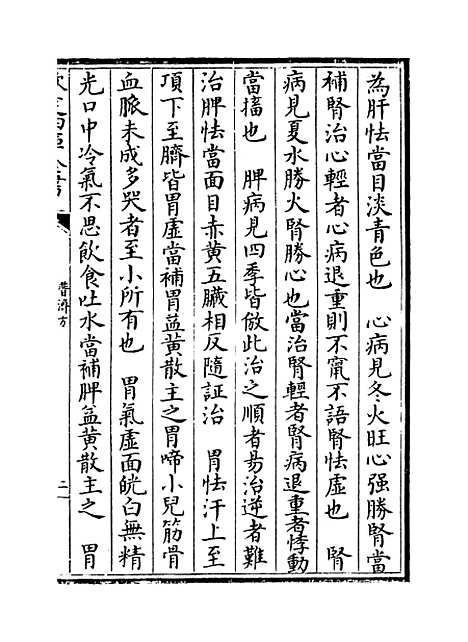 為肝怯當目淡青色也　心病見冬火旺心强勝腎當
補腎治心輕者心病退重則不甯不語腎怯虛也　腎
病見夏水勝火腎勝心也當治腎輕者腎病退重者悸動
當搐也　脾病見四季皆倣此治之順者易治逆者難
治脾怯當面目赤黄五臟相反隨証治　胃怯汗上至
項下至臍皆胃虛當補胃益黄散主之胃啼小兒筋骨
血脈未成多哭者至小所有也　胃氣虛面㿠白無精
光口中冷氣不思飲食吐水當補脾益黄散主之　胃
普濟方